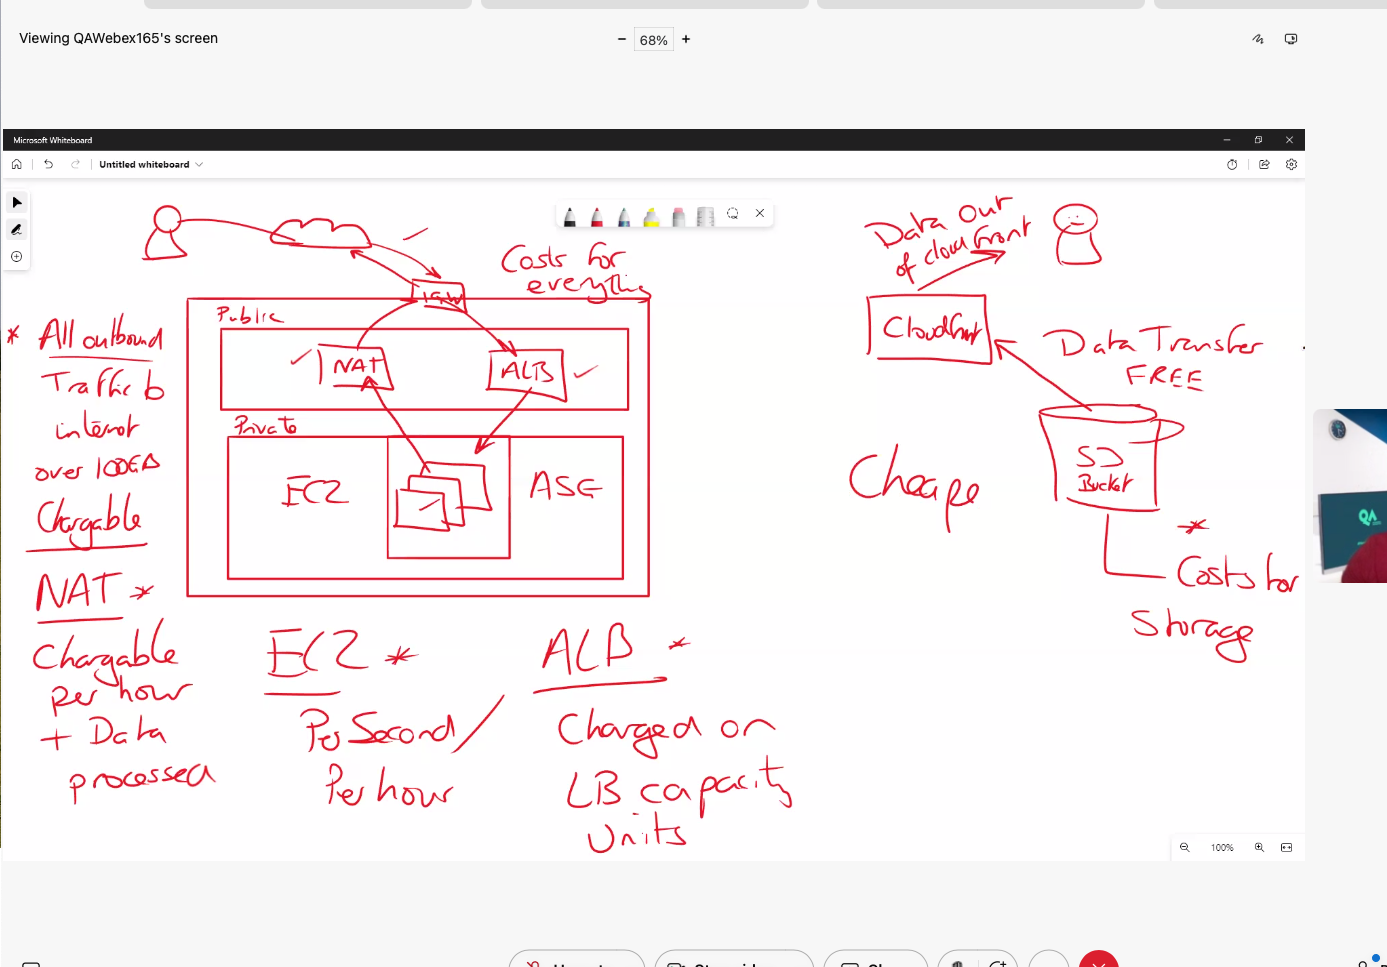 Viewing QAWebex165's screen
68%
Microsoft Whiteboard
Untitled whiteboard
Costs for
everything
IGW
Public
NAT
ALB
Private
EC2
ASG
* All outbound
Traffic to
internet
over 100GB
Chargable
NAT *
Chargable
per hour
+ Data
processed
EC2 *
Per Second /
Per hour
ALB *
Charged on
LB capacity
Units
Data Out
of cloudfront
Cloudfront
Data Transfer
FREE
Bucket
Cheape
*
Costs for
Storage
QA
100%